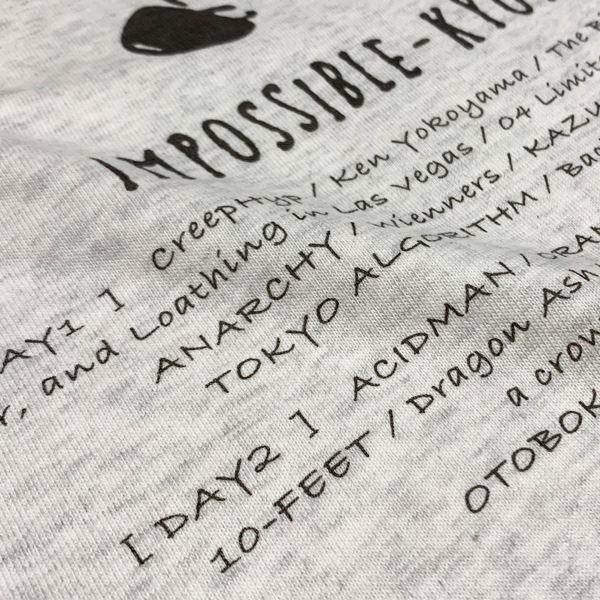 IMPOSSIBLE-KYO
AY1 ] CreepHyp / Ken Yokoyama / The B
r, and Loathing in Las Vegas / 04 Limite
ANARCHY / Wienners / KAZU
TOKYO ALGORITHM / Bac
[ DAY2 ] ACIDMAN / ORAN
10-FEET / Dragon Ash
a crow
OTOBOK